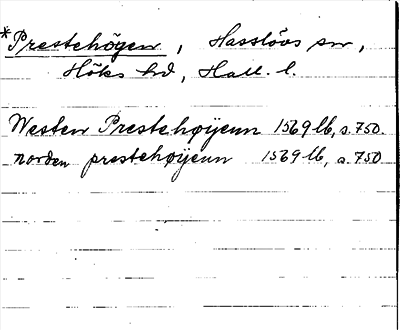 *Prestehögen, Hasslövs sn,
Höks hd, Hall. l.
Westen Prestehøÿenn 1569 lb, s. 750.
norden prestehøÿenn 1569 lb, s. 750